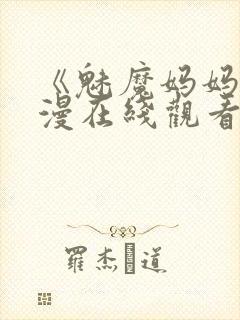 《魅魔妈妈
漫在线觀看
羅杰 道